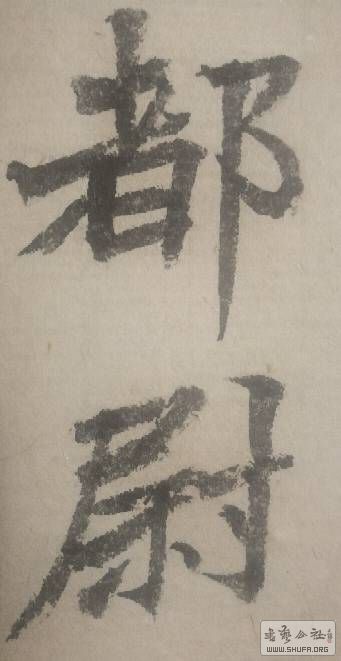 都尉
书艺公社
WWW.SHUFA.ORG